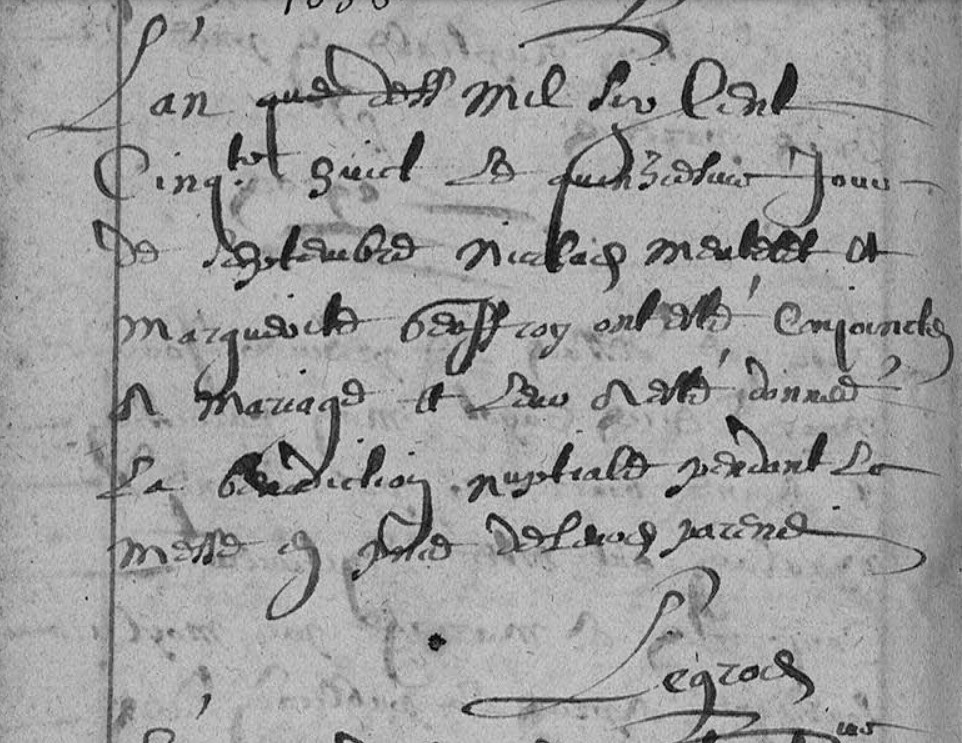 1658
L'an que dess mil six Cent
Cinqte huict Le quinziesme Jour
de Septembre Nicolas et
Marguerite Geoffroy ont esté Conjoincts
en Mariage et Leur a esté donnée
La benediction nuptiale pendant La
Messe en pnce de Leurs parens
Legros